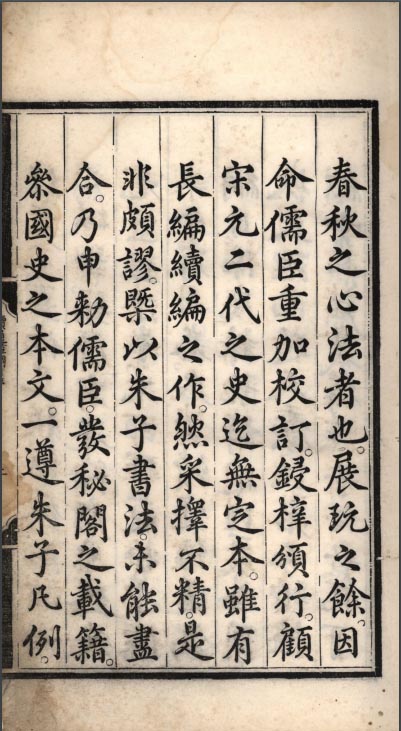 春秋之心法者也。展玩之餘。因
命儒臣重加校訂。鋟梓頒行。顧
宋元二代之史迄無㝎本。雖有
長編續編之作。然采擇不精。是
非頗謬。槩以朱子書法。未能盡
合。乃申勑儒臣。發秘閣之載籍。
叅國史之本文。一遵朱子凡例。